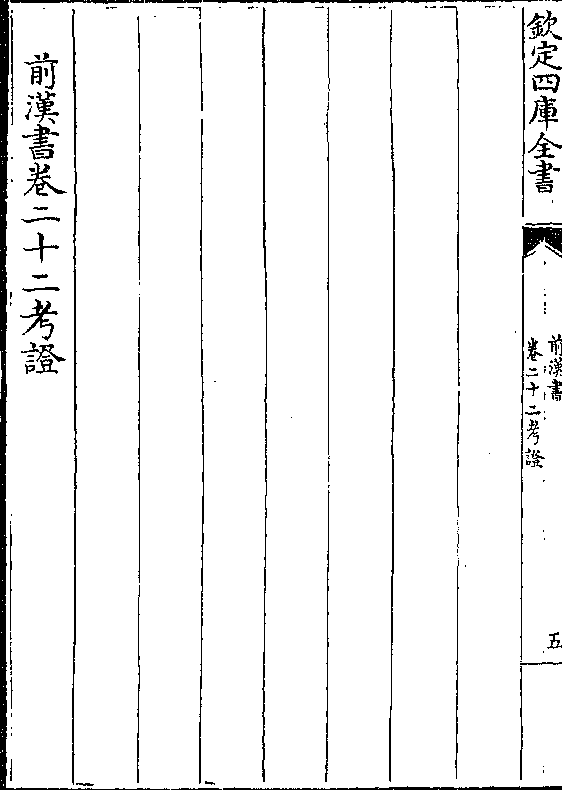 欽定四庫全書
前漢書
卷二十二考證
五
前漢書卷二十二考證